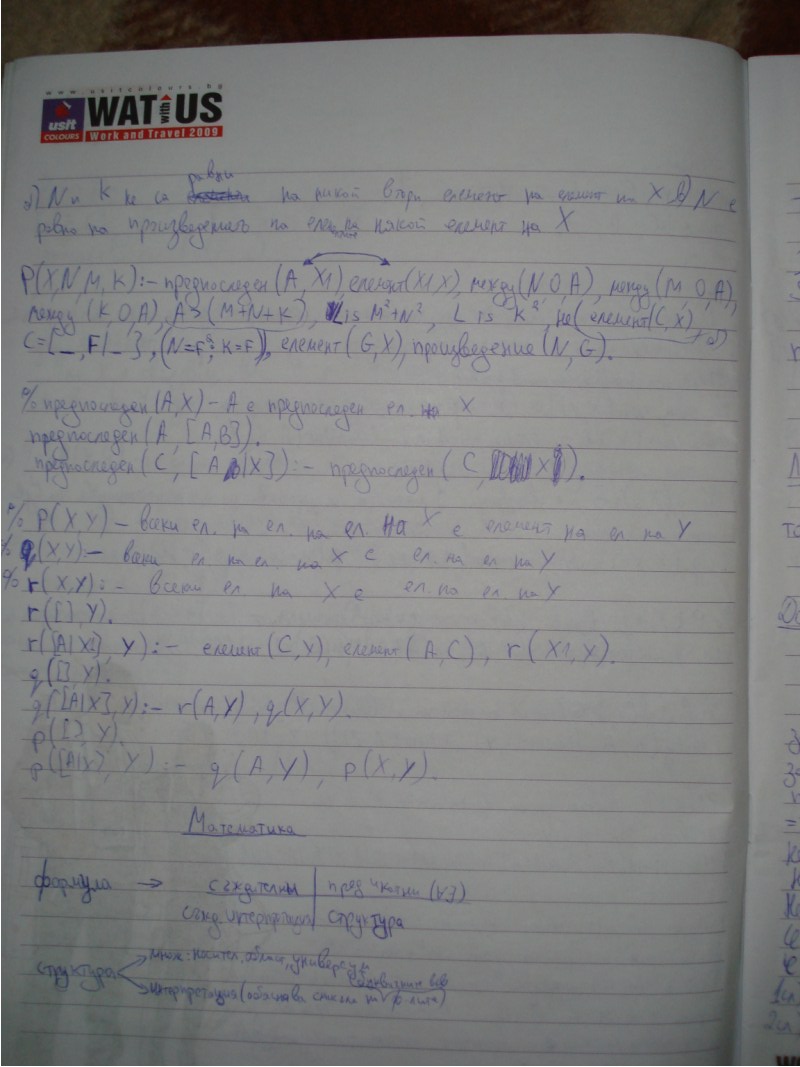 www.usitcolours.bg
usit COLOURS WAT with US
Work and Travel 2009
N и K не са равни на никой втори елемент на елемент на X в) N е
равно на произведението на елем. на някой елемент на X
p(X,N,M,K):- предпоследен(A,X1), елемент(X1,X), между(N,0,A), между(M,0,A),
между(K,0,A), A>(M+N+K), L is M²+N², L is K², не(елемент(C,X)
C=[_,F|_], (N=F; K=F)), елемент(G,X), произведение(N,G).
% предпоследен(A,X) – A е предпоследен ел. на X
предпоследен(A,[A,B]).
предпоследен(C,[A|X]):- предпоследен(C,X).
% p(X,Y) – всеки ел. на ел. на ел. на X е елемент на ел. на Y
% q(X,Y) – всеки ел. на ел. на X е ел. на ел. на Y
% r(X,Y):- всеки ел. на X е ел. на ел. на Y
r([],Y).
r([A|X1],Y):- елемент(C,Y), елемент(A,C), r(X1,Y).
q([],Y).
q([A|X],Y):- r(A,Y), q(X,Y).
p([],Y).
p([A|X],Y):- q(A,Y), p(X,Y).
Математика
формула → съждителни | предикатни (∀∃)
съжд. интерпретация | структура
структура множ: носител, област, универсум
интерпретация (обяснява смисъла на